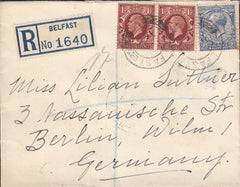 BELFAST
R No 1640
Miss Lilian Suttner
3 Nassauische Str
Berlin, Wilm/
Germany.